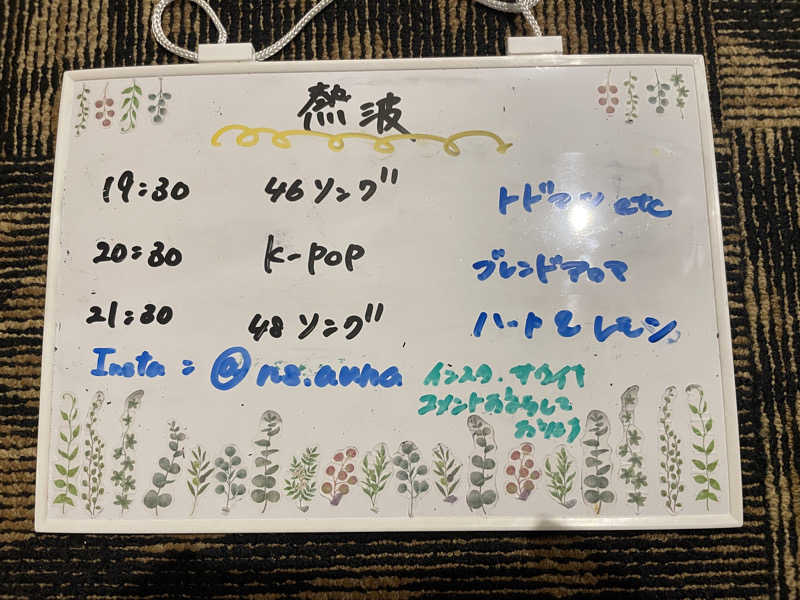 熱波
19:30 46ソング トドマツ etc
20:30 K-POP ブレンドアロマ
21:30 48ソング ハート&レモン
Insta: @ns.auna
インスタ、サウイキ
コメントお待ちして
おります